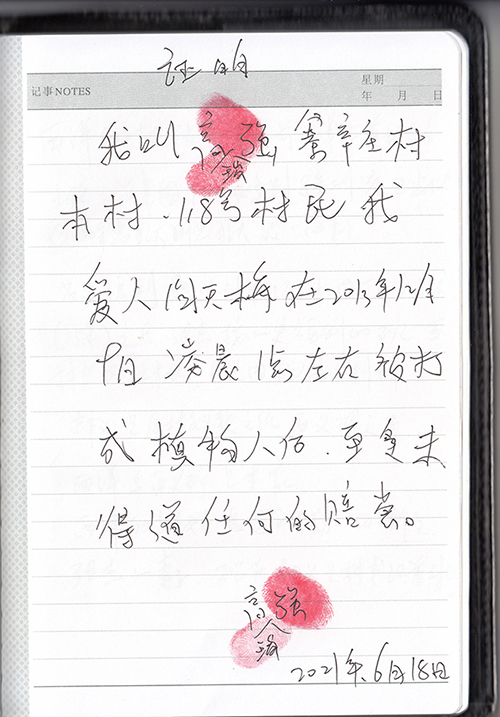 证明
记事NOTES
星期
年 月 日
我叫高强 辛庄村
本村.118号村民 我
爱人 天梅 在2013年12月
9日 凌晨1点左右被打
成植物人后.至是未
得道任何的赔尝。
高强
2021年6月18日